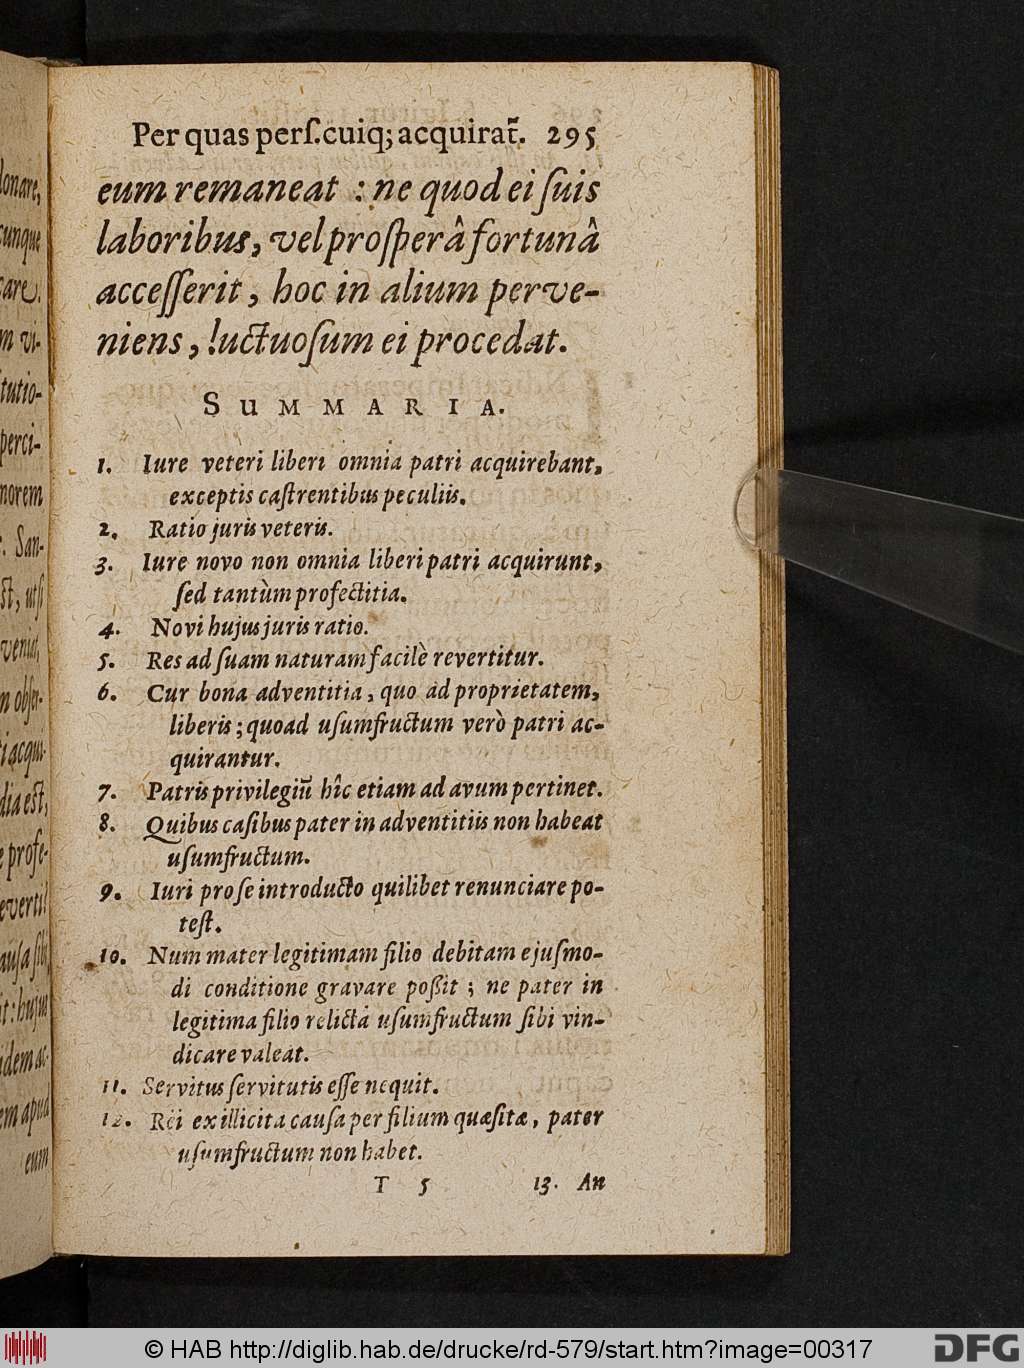 Per quas perſ. cuiq; acquirat̃. 295
eum remaneat : ne quod ei ſuis
laboribus, vel proſperâ fortunâ
acceſſerit, hoc in alium perve-
niens, luctuoſum ei procedat.
SUMMARIA.
1. Iure veteri liberi omnia patri acquirebant,
exceptis caſtrentibus peculiis.
2. Ratio juris veteris.
3. Iure novo non omnia liberi patri acquirunt,
ſed tantùm profectitia.
4. Novi hujus juris ratio.
5. Res ad ſuam naturam facilè revertitur.
6. Cur bona adventitia, quo ad proprietatem,
liberis; quoad uſumfructum verò patri ac-
quirantur.
7. Patris privilegiũ hîc etiam ad avum pertinet.
8. Quibus caſibus pater in adventitiis non habeat
uſumfructum.
9. Iuri pro ſe introducto quilibet renunciare po-
teſt.
10. Num mater legitimam filio debitam ejuſmo-
di conditione gravare poßit ; ne pater in
legitima filio relicta uſumfructum ſibi vin-
dicare valeat.
11. Servitus ſervitutis eſſe nequit.
12. Rei ex illicita cauſa per filium quæſitæ, pater
uſumfructum non habet.
T 5 13. An
lonare,
cunque
care.
m vi-
ſtutio-
perci-
norem
San-
eſt, utſi
venia,
m obſer-
ti acqui-
dia eſt,
e profe-
everti
auſa ſibi
it: hujus
idem ac-
em apud
eum
© HAB http://diglib.hab.de/drucke/rd-579/start.htm?image=00317
DFG